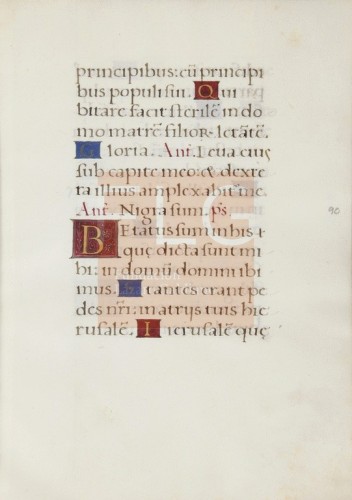 principibus: cū principi
bus populi sui. Qui
bitare facit sterilē in do
mo matrē filioꝝ lętātē.
Gloria. Añ. Leua eius
sub capite meo: & dexte
ra illius amplexabit me.
Añ. Nigra sum. ps
BEtatus sum in his t
quę dicta sunt mi
bi: in domū domini ibi
mus. Stantes erant pe
des nr̄i: in atrijs tuis hie
rusalē. Ierusalē quę
90
LG